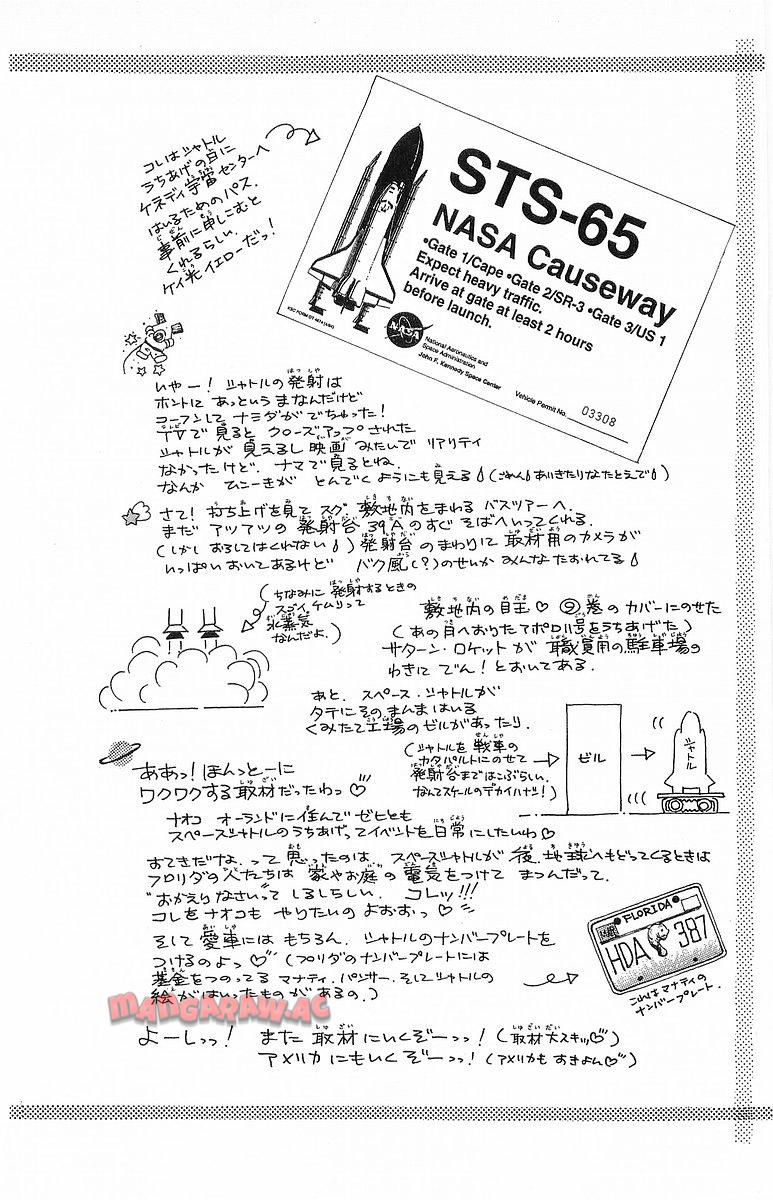 コレはシャトル
うちあげの日に
ケネディ宇宙センターへ
はいるためのパス.
事前に申しこむと
くれるらしい.
ケイ光イエローだっ!
STS-65
NASA Causeway
•Gate 1/Cape •Gate 2/SR-3 •Gate 3/US 1
Expect heavy traffic.
Arrive at gate at least 2 hours
before launch.
NASA
National Aeronautics and
Space Administration
John F. Kennedy Space Center
Vehicle Permit No. 03308
いやー! シャトルの発射は
ホントにあっというまなんだけど
コーフンして ナミダがでちゃった!
TVで見ると クローズアップされた
シャトルが 見えるし 映画 みたいで リアリティ
なかったけど. ナマで見るとね.
なんか ひこーきが とんでくようにも見える(ごめんありきたりなたとえで)
さて! 打ち上げを見て スグ. 敷地内をまわる バスツアーへ.
まだ アツアツの 発射台 39Aのすぐ そばへいってくれる.
(しかし おろしてはくれない) 発射台 のまわりに 取材用のカメラが
いっぱい おいてあるけど バク風(?)のせいか みんな たおれてる
(ちなみに 発射するときの
スゴイ ケムリって
水蒸気
なんだよ.)
敷地内の目玉♡ ⑨巻のカバーにのせた
(あの月へおりたアポロ11号をうちあげた)
サターン・ロケットが 職員用の駐車場の
わきに でん! とおいてある.
あと. スペース・シャトルが
タテにそのまんまはいる
くみたて工場のビルがあったり.
(シャトルを 戦車の
カタパルトにのせて
発射台まではこぶらしい.
なんてスケールのデカイハナシ!)
ビル
シャトル
ああっ! ほんっとーに
ワクワクする 取材だったわっ♡
ナオコ オーランドに住んで ゼヒとも
スペースシャトルのうちあげってイベントを日常にしたいわ♡
すてきだなよ. って 思ったのは. スペースシャトルが 後. 地球へもどってくるときは
フロリダの人たちは 家やお庭の 電気をつけて まつんだって.
"おかえりなさい"って しるしらしい. コレッ!!!
コレをナオコも やりたいのよおおっ♡
そして 愛車には もちろん. シャトルのナンバープレートを
つけるのよっ♡ (フロリダのナンバープレートには
基金をつのってる マナティ. パンサー. そしてシャトルの
絵がはいったものがあるの.)
FLORIDA
HDA 387
これはマナティの
ナンバープレート.
よーしっっ! また 取材にいくぞーっっ! (取材大スキッ♡)
アメリカにもいくぞーっっ! (アメリカもすきよん♡)
MANGARAW.AC